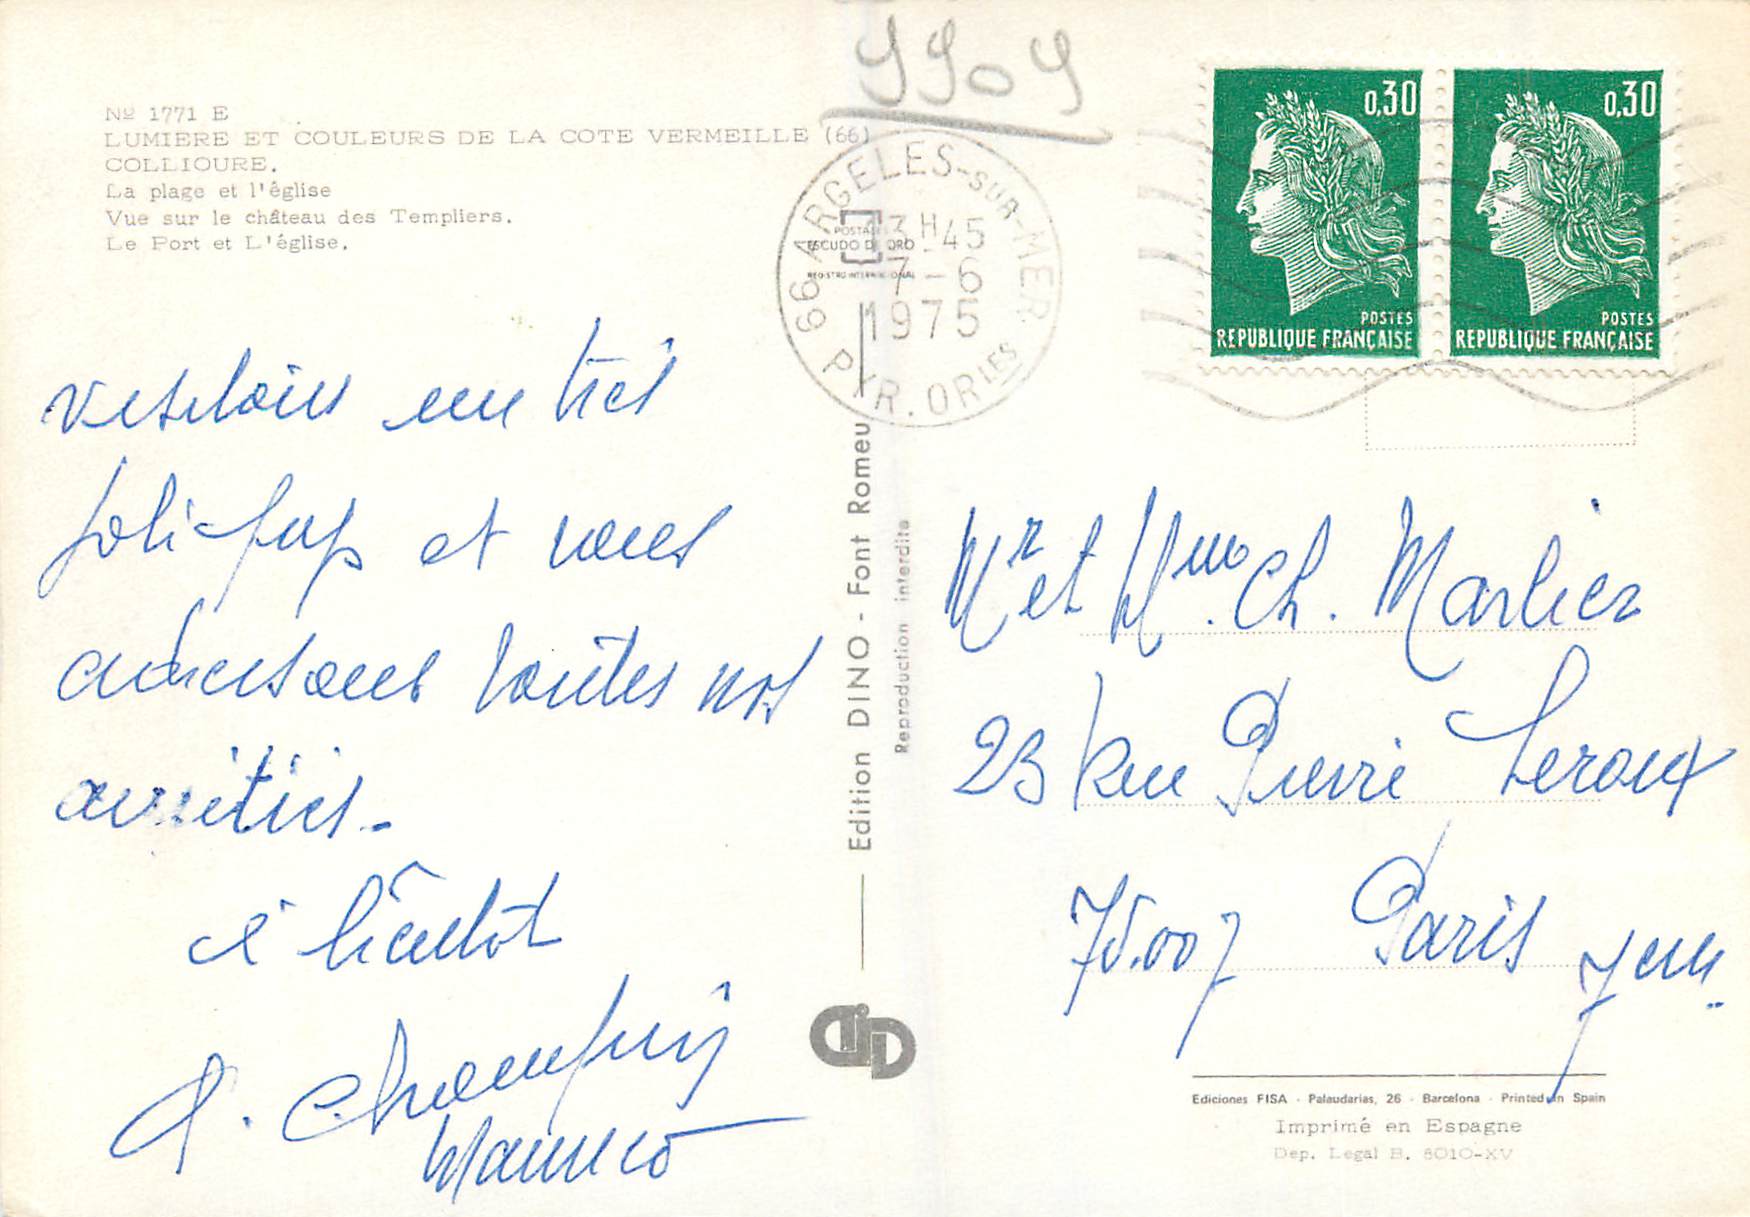 9909
Nº 1771 E
LUMIERE ET COULEURS DE LA COTE VERMEILLE (66)
COLLIOURE.
La plage et l'église
Vue sur le château des Templiers.
Le Port et L'église.
POSTALES
ESCUDO DE ORO
REGISTRO INTERNACIONAL
66 ARGELES-SUR-MER
13H45
7-6
1975
PYR. ORIES
0,30
POSTES
REPUBLIQUE FRANÇAISE
0,30
POSTES
REPUBLIQUE FRANÇAISE
un très
joli et vous
adressons toutes nos
amitiés -
à bientôt
Edition DINO - Font Romeu
Reproduction interdite
Mr et Mme. Ch. Marlier
23 Rue Pierre Leroux
75.007 Paris 7em
Ediciones FISA - Palaudarias, 26 - Barcelona - Printed in Spain
Imprimé en Espagne
Dep. Legal B. 8010-XV